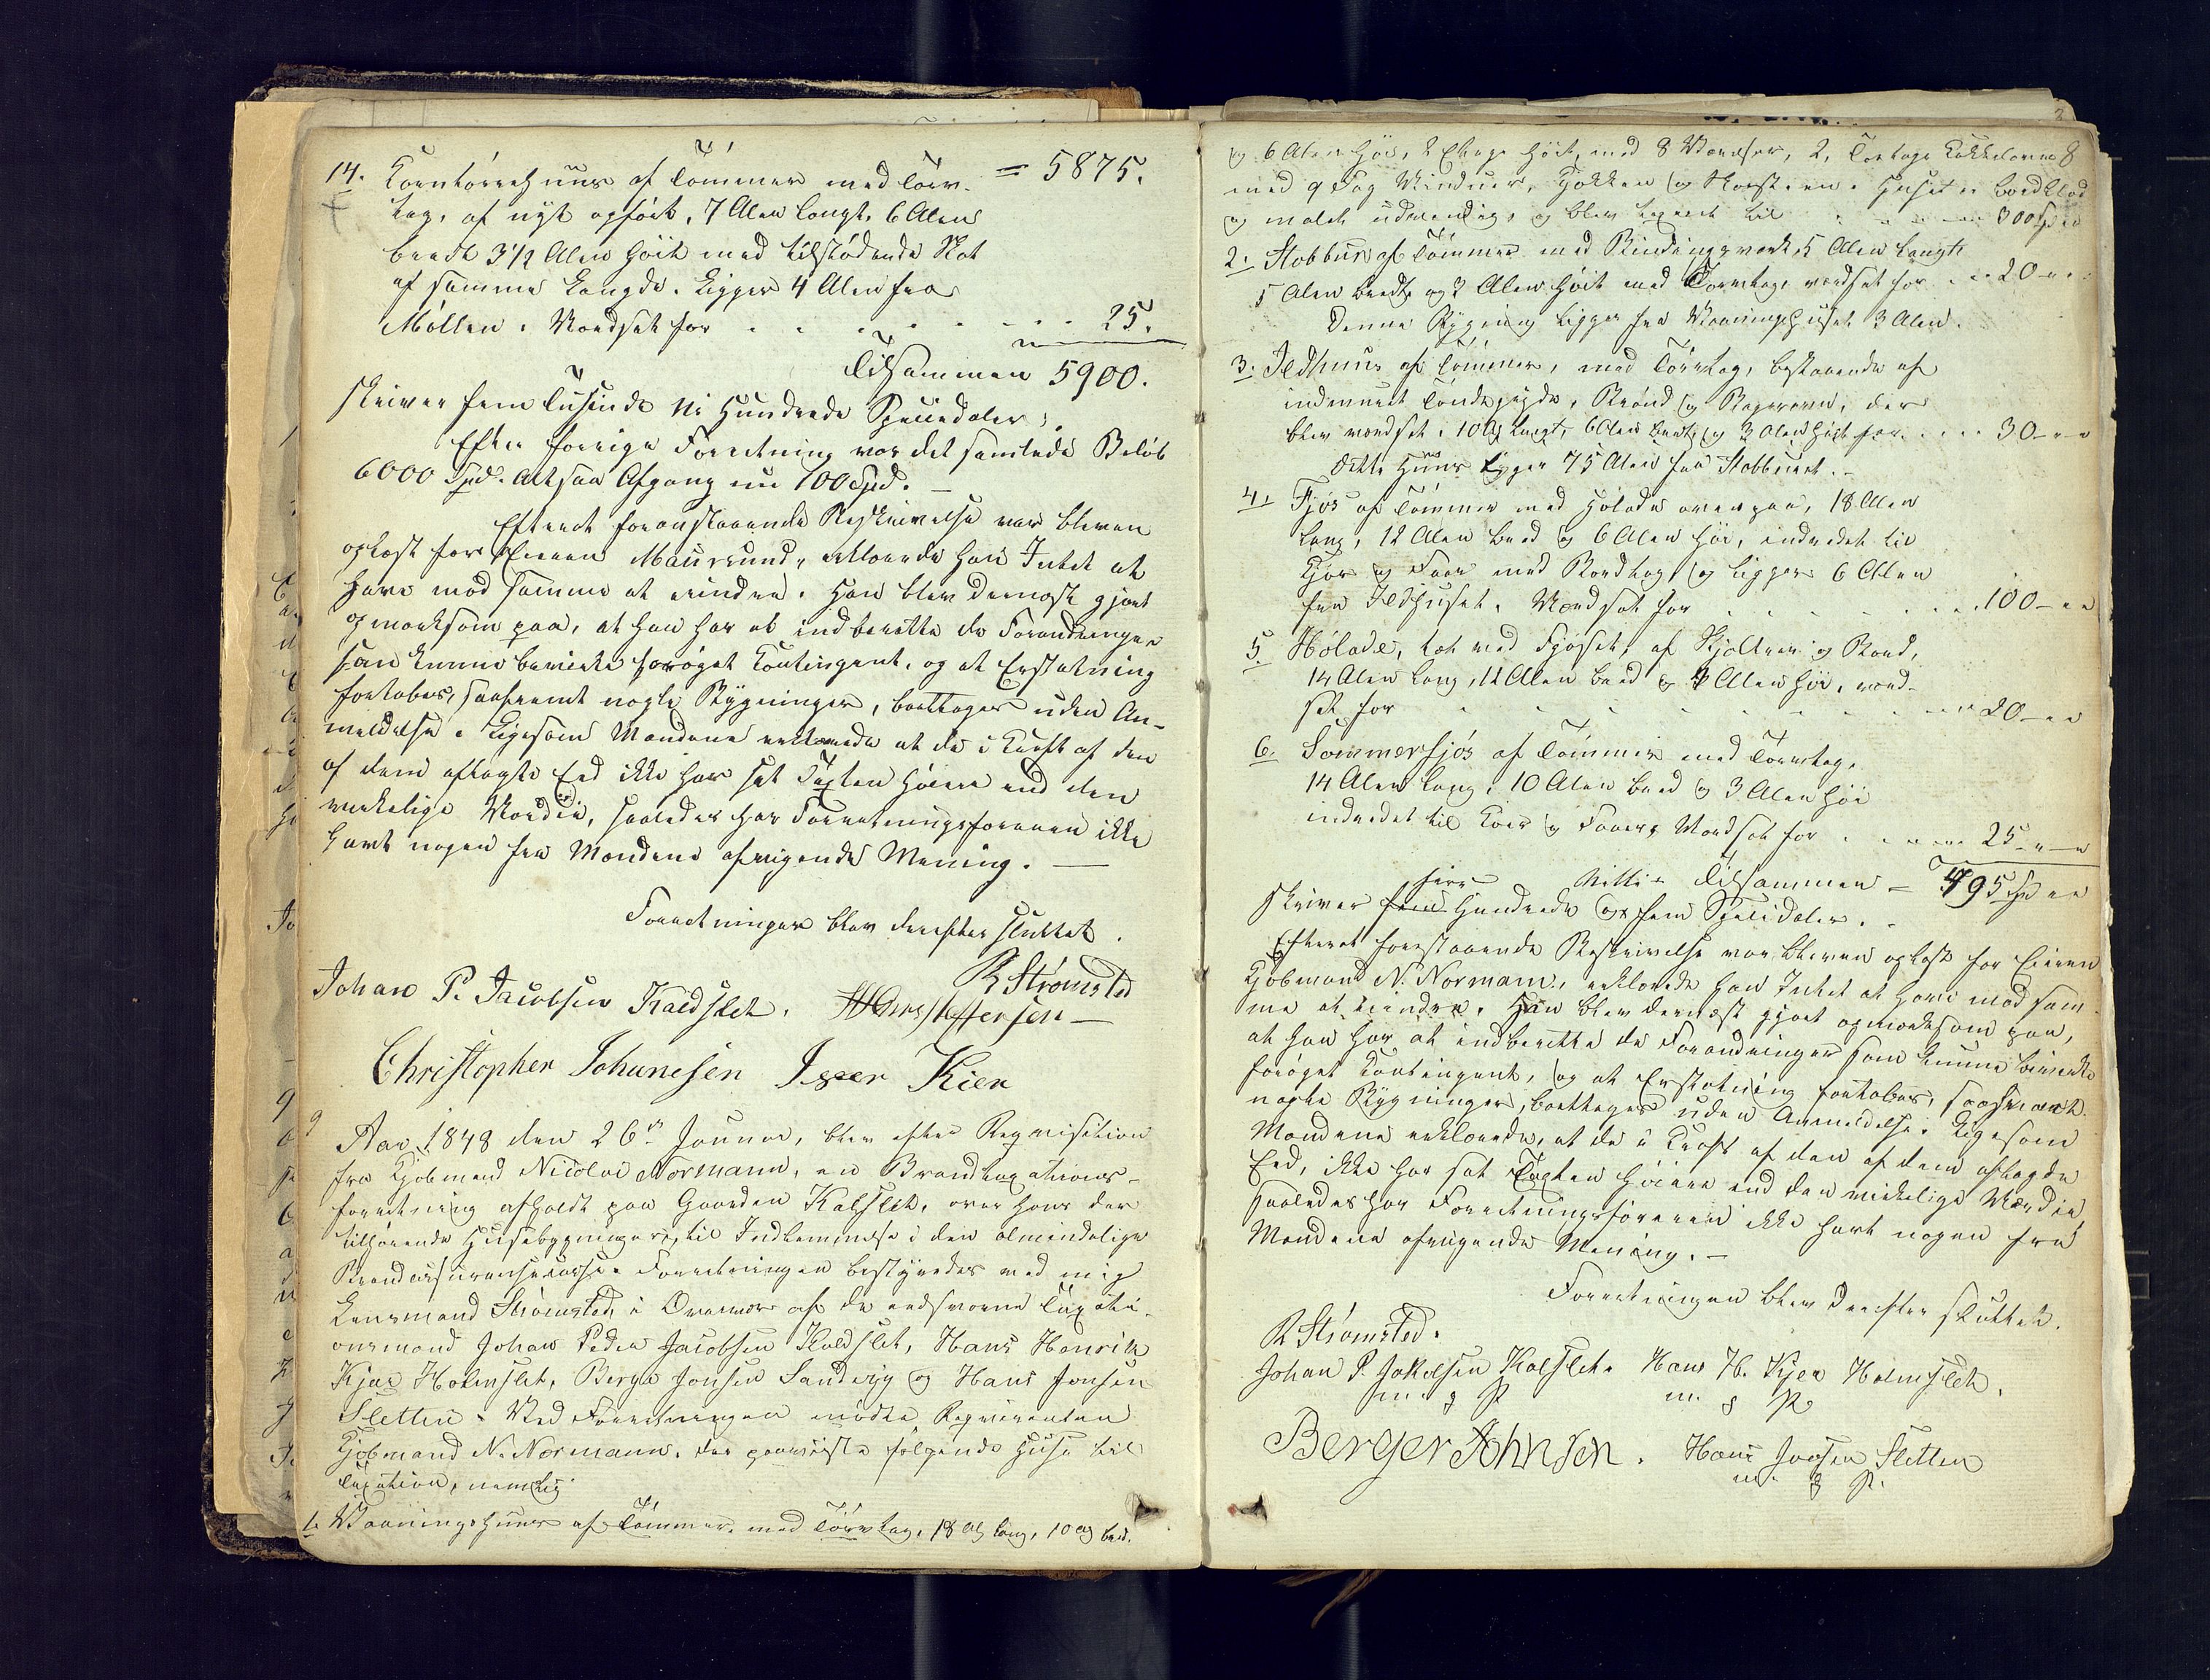 14. Korntørrehuus af Tømmer med Torv- = 5875.
tag, af nyt opført, 7 Alen langt, 6 Alen
bredt 3 1/2 Alen høit med tilstødende Skot
af samme Længde. Ligger 4 Alen fra
Møllen. Værdsat for . . . . . . 25.
Tilsammen 5900.
skriver fem Tusinde Ni Hundrede Speciedaler.
Efter forrige Forretning var det samlede Beløb
6000 Spd. Altsaa Afgang nu 100 Spd. –
Efterat foranstaaende Beskrivelse var bleven
oplæst for Eieren Maursund, erklærede han Intet at
have mod samme at erindre. Han blev dernæst gjort
opmærksom paa, at han har at indberette de Forandringer
som kunne bevirke forøget Contingent, og at Erstatning
fortabes, saafremt nogle Bygninger, borttages uden An-
meldelse. Ligesom Mændene erklærede at de i Kraft af den
af dem aflagte Eed ikke har sat Taxten høiere end den
virkelige Værdie, saaledes har Forretningsføreren ikke
havt nogen fra Mændene afvigende Mening. —
Forretningen blev derefter sluttet.
R Strømsted
Johan P. Jacobsen Kaldslet. Steffensen —
Christopher Johanesen Isser Kier
9 Aar 1848 den 26de Januar, blev efter Requisition
fra Kjøbmand Nicolai Normann, en Brandtaxations-
forretning afholdt paa Gaarden Kalslet, over hans der
tilhørende Husebygninger, til Indlemmelse i den almindelige
Brandassurancecasse. Forretningen bestyredes ved mig
Lensmand Strømsted, i Overvær af de eedsvorne Taxati-
onsmænd Johan Peder Jacobsen Kaldslet, Hans Henrik
Kjær Holmslet, Berger Jonsen Sandvig og Hans Jonsen
Sletten. Ved Forretningen mødte Requirenten
Kjøbmand N. Normann, der paaviiste følgende Huse til
Taxation, nemlig
1. Vaaningshuus af Tømmer, med Torvtag, 18 Al lang, 10 Al bred,
og 6 Alen høi, 2 Etage høit, med 8 Værelser, 2, Toetages Kakkelovne &
med 9 Fag Vinduer, Kjøkken og Skorsteen. Huset er bordklæd
og malet udvendig, og blev taxeret til . . . . 300 Spd
2. Stabbur af Tømmer med Bindingsværk, 5 Alen langt
5 Alen bredt og 3 Alen høit med Torvtag, værdsat for . . 20 – "
Denne Bygning ligger fra Vaaningshuset 3 Alen.
3. Ildhuus af Tømmer, med Torvtag, bestaaende af
indmuret Tøndegryde, Brønd og Bagerovn, der
blev værdsat, 10 Al langt, 6 Alen bredt, og 3 Alen høit for . . . 30 – "
Dette Huus ligger 75 Alen fra Stabburet. –
4. Fjøs af Tømmer med Høladе ovenpaa, 18 Alen
lang, 12 Alen bred og 6 Alen høi, indredet til
Kjør og Faar med Bordtag, og ligger 6 Alen
fra Ildhuset. Værdsat for . . . . . . 100 – "
5. Hølade, tæt ved Fjøset, af Skjeltrær og Bord,
14 Alen lang, 11 Alen bred og 4 Alen høi, værd-
sat for . . . . . . . . 20 – "
6. Sommerfjøs af Tømmer med Torvtag,
14 Alen lang, 10 Alen bred og 3 Alen høi
indredet til Kiør og Faarer, Værdsat for . . . . 25 – "
Tilsammen – 495 Spd
skriver fire Hundrede Nitti og fem Speciedaler. –
Efterat foranstaaende Beskrivelse var bleven oplæst for Eieren
Kjøbmand N. Normann, erklærede han Intet at have mod sam-
me at erindre. Han blev dernæst gjort opmærksom paa,
at han har at indberette de Forandringer som kunne bevirke
forøget Contingent, og at Erstatning fortabes, saafremt
nogle Bygninger, borttages uden Anmeldelse. Ligesom
Mændene erklærede, at de i Kraft af den af dem aflagde
Eed, ikke har sat Taxten høiere end den virkelige Værdie
saaledes har Forretningsføreren ikke havt nogen fra
Mændene afvigende Mening. –
Forretningen blev derefter sluttet.
R Strømsted.
Johan P. Jakobsen Kalslet. Hans H. Kjer Holmslet,
m. f. P. m. f. P.
Berger Johnsen. Hans Jonsen Sletten
m. f. P.